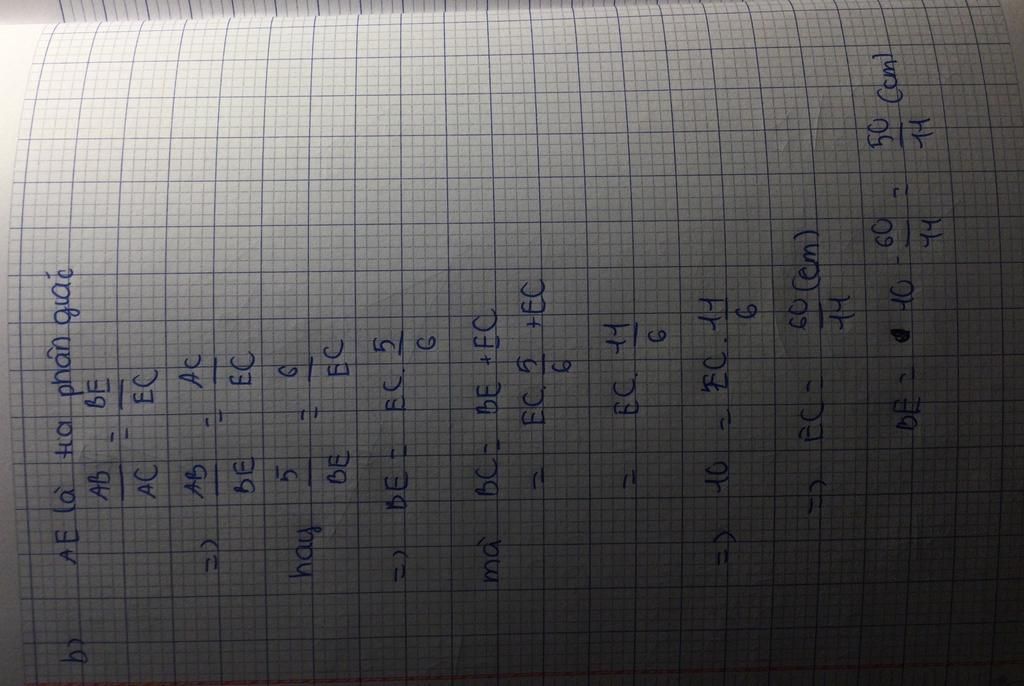 b) AE là tia phân giác
AB/AC = BE/EC
=> AB/BE = AC/EC
hay 5/BE = 6/EC
=> BE = EC . 5/6
mà BC = BE + EC
= EC . 5/6 + EC
= EC . 11/6
=> 10 = EC . 11/6
=> EC = 60/11 (cm)
BE = 10 - 60/11 = 50/11 (cm)